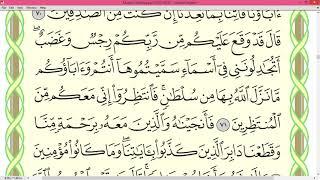 ءَابَاؤُنَا فَأْتِنَا بِمَا تَعِدُنَآ إِن كُنتَ مِنَ ٱلصَّٰدِقِينَ ٧٠
قَالَ قَدْ وَقَعَ عَلَيْكُم مِّن رَّبِّكُمْ رِجْسٌ وَغَضَبٌ
أَتُجَٰدِلُونَنِى فِىٓ أَسْمَآءٍ سَمَّيْتُمُوهَآ أَنتُمْ وَءَابَآؤُكُم
مَّا نَزَّلَ ٱللَّهُ بِهَا مِن سُلْطَٰنٍ فَٱنتَظِرُوٓا۟ إِنِّى مَعَكُم مِّنَ
ٱلْمُنتَظِرِينَ ٧١ فَأَنجَيْنَٰهُ وَٱلَّذِينَ مَعَهُۥ بِرَحْمَةٍ مِّنَّا
وَقَطَعْنَا دَابِرَ ٱلَّذِينَ كَذَّبُوا۟ بِـَٔايَٰتِنَا وَمَا كَانُوا۟ مُؤْمِنِينَ